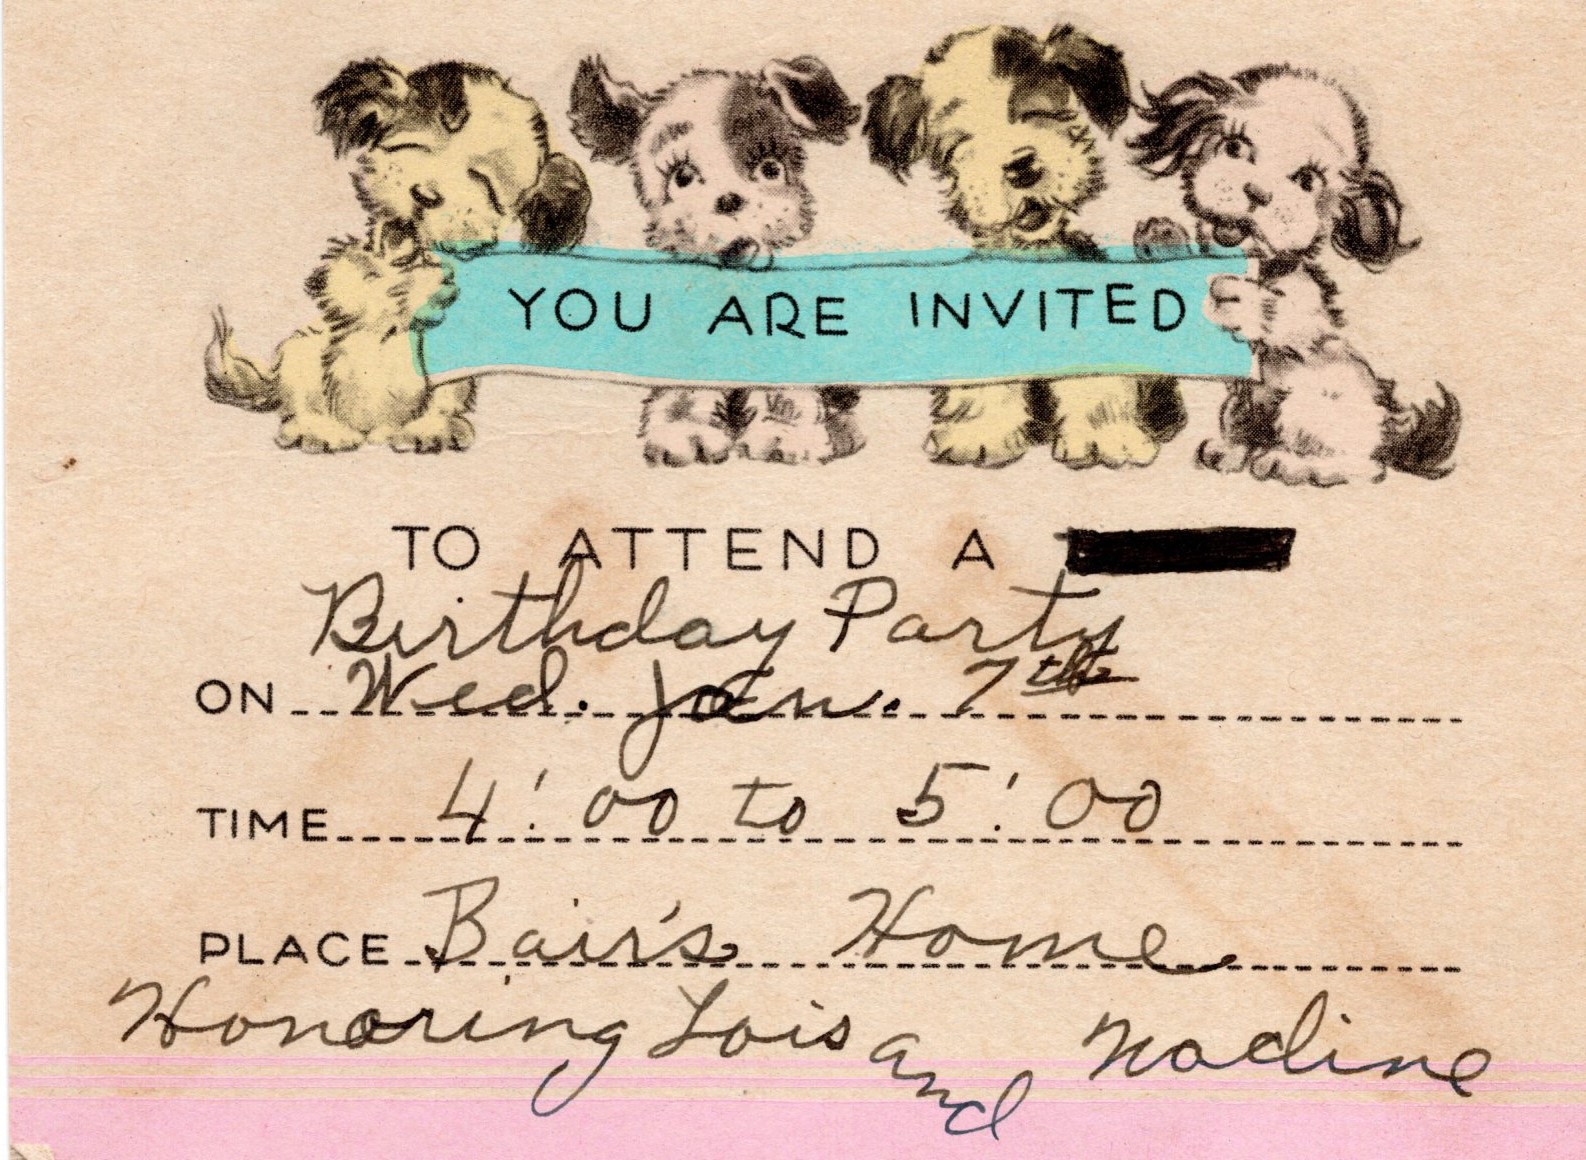 YOU ARE INVITED
TO ATTEND A
Birthday Party
ON Wed. Jan. 7th
TIME 4:00 to 5:00
PLACE Bair's Home
Honoring Lois and Nadine